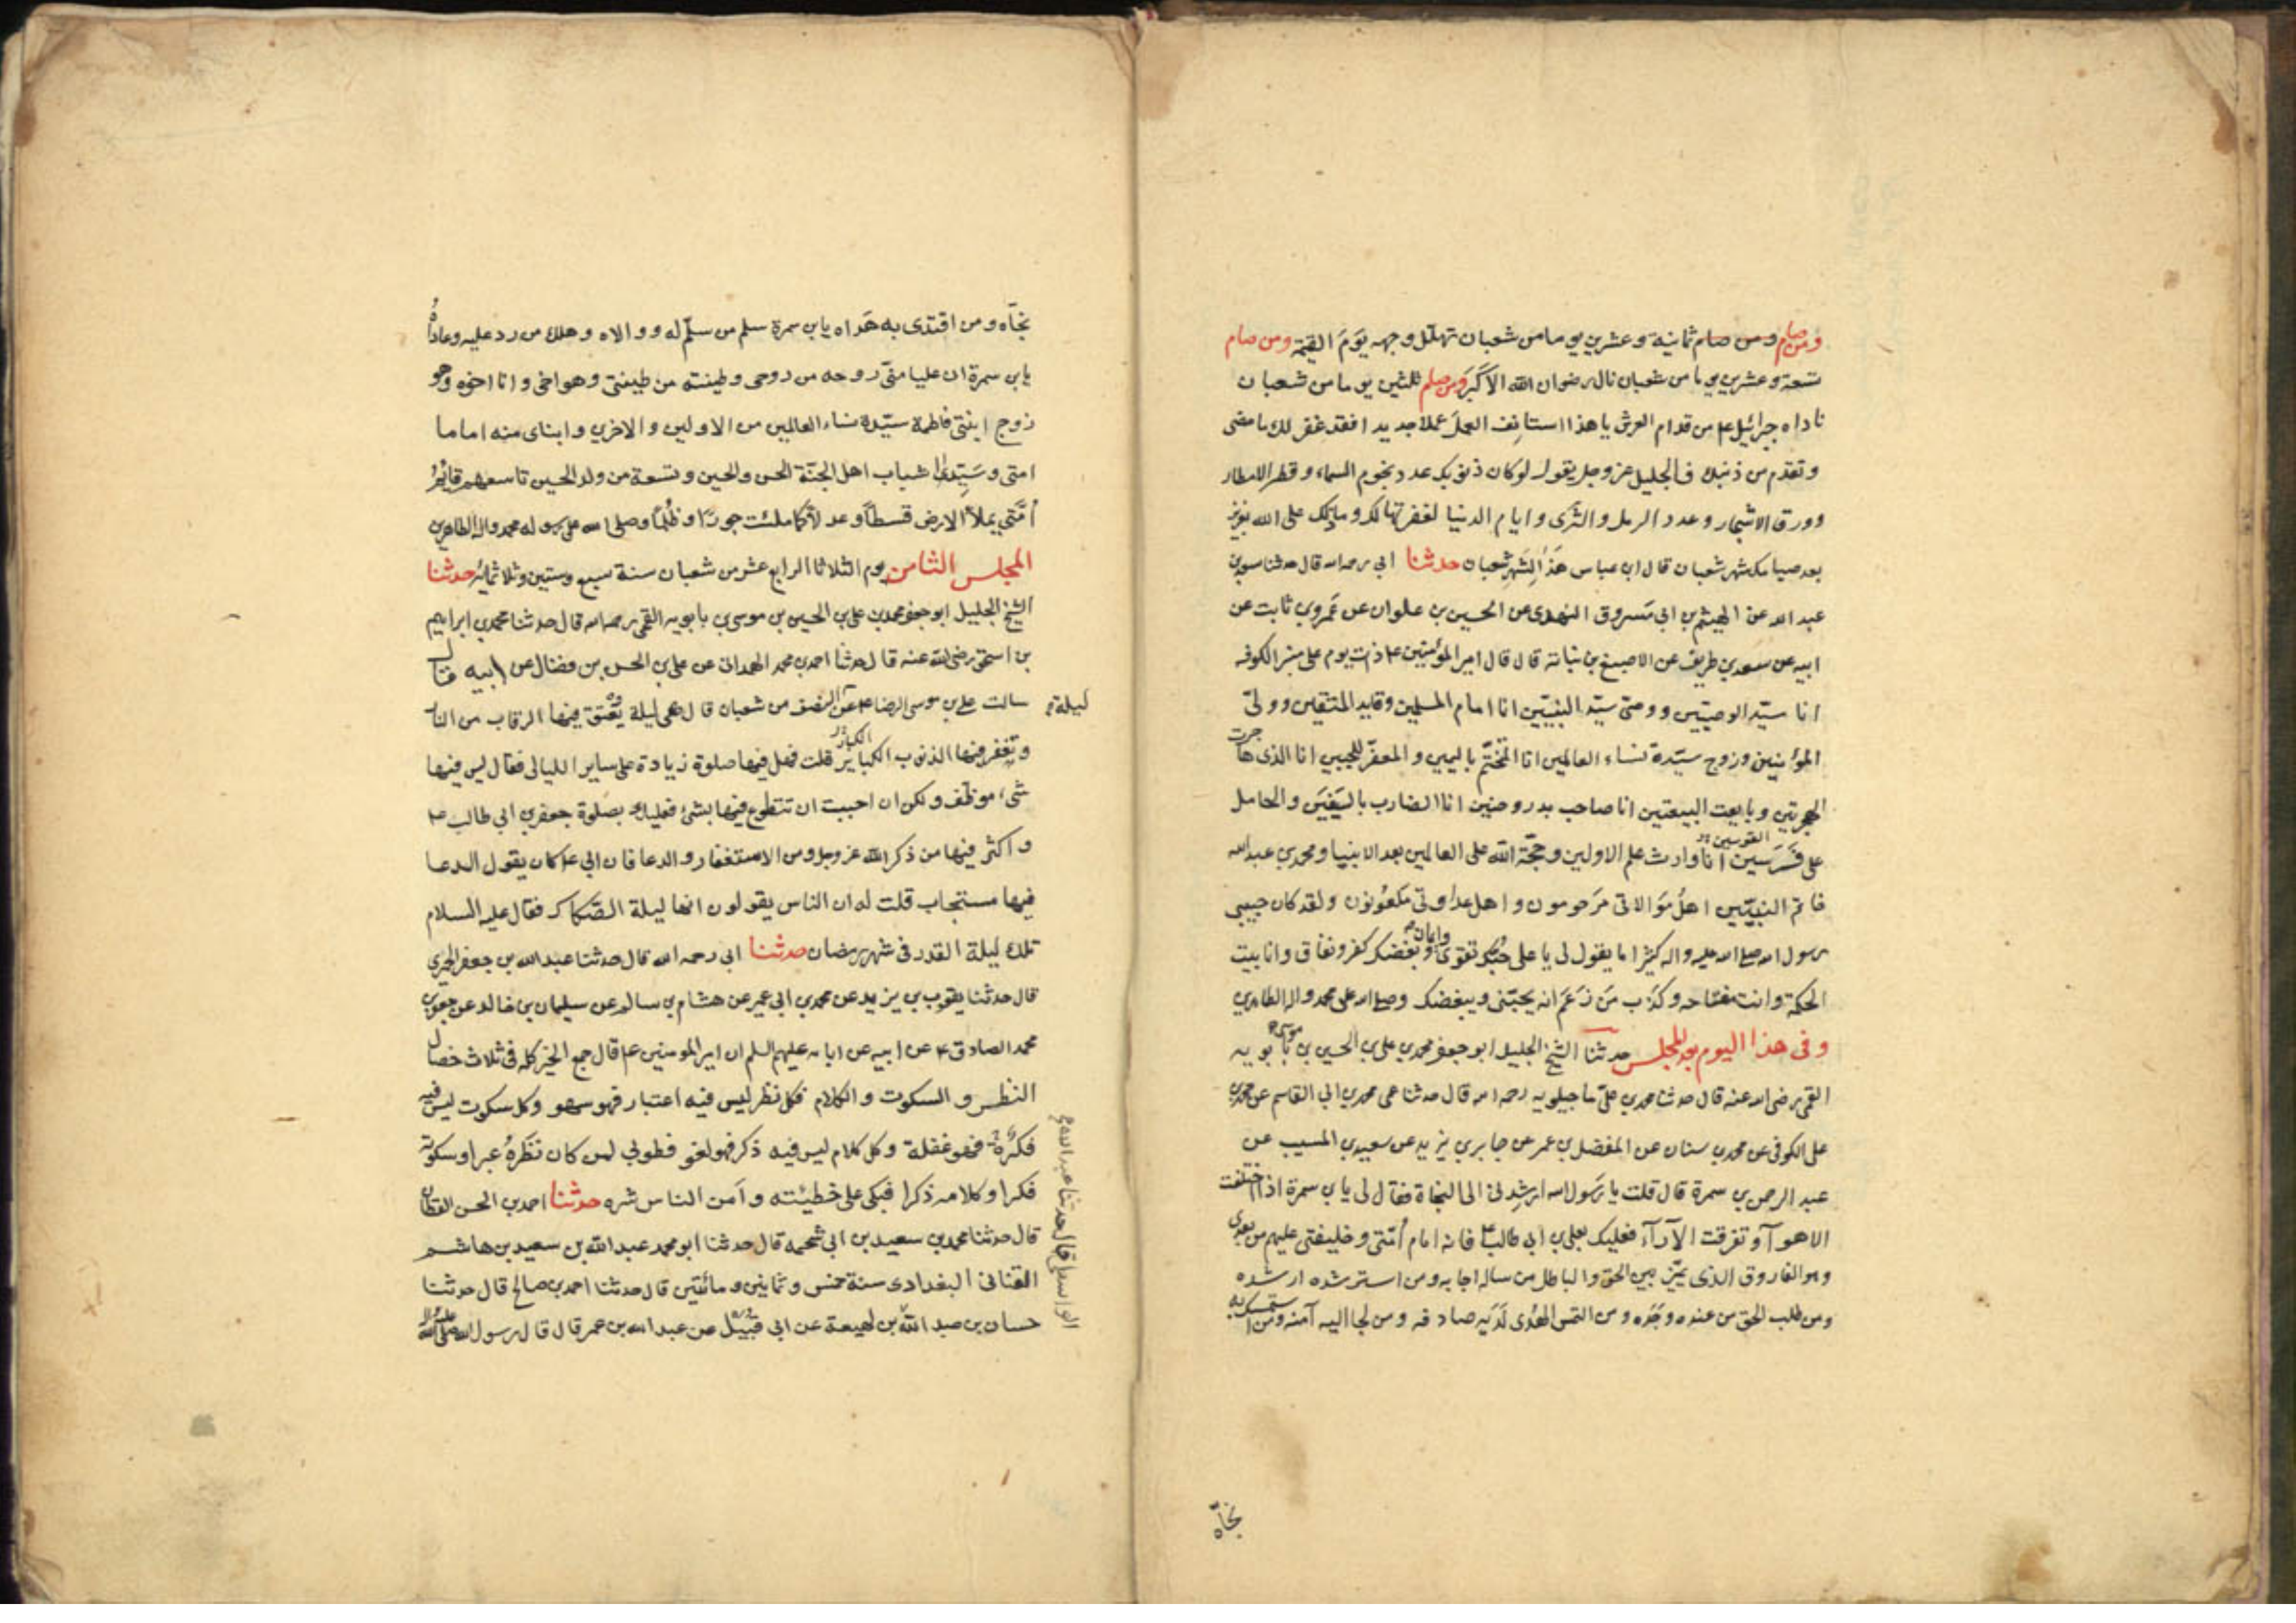 ومن صام ومن صام ثمانية وعشرين يوما من شعبان تهلل وجهه يَوْمَ القيمة ومن صام
تسعة وعشرين يوما من شعبان نال رضوان الله الاكبر ومن صام ثلثين يوما من شعبان
ناداه جبرائيل ع من قدام العرش يا هذا استانف العملَ عملا جديدا فقد غفر لك ما مضى
وتقدم من ذنبك فالجليل عز وجل يقول لو كان ذنوبك عدد نجوم السماء وقطر الامطار
وورق الاشجار وعدد الرمل والثرى وايام الدنيا لغفرتها لك وما ذلك على الله بعزيز
بعد صيامك شهر شعبان قال ابن عباس هذا لِشهر شعبان حدثنا ابي رحمه الله قال حدثنا سعد بن
عبد الله عن الهيثم بن ابي مَسروق النهدى عن الحسين بن علوان عن عَمرو بن ثابت عن
ابيه عن سعد بن طريف عن الاصبغ بن نباتة قال قال امير المؤمنين ع ذات يوم على منبر الكوفه
انا سيّد الوصيّين ووصىّ سيّد النبيّين انا امام المسلمين وقايد المتّقين وولىّ
المؤمنين وزوج سيّدة نساء العالمين انا المتختّم باليمين والمعفّر للجبين انا الذى هاجرت
الهجرتين وبايعت البيعتين انا صاحب بدر وحنين انا الضارب بالسَيْفَين والحامل
على فَرَسين القوسين انا وارث علم الاولين وحجّة الله على العالمين بعد الانبيا ومحمد بن عبد الله
خاتم النبيّين اهلُ مَوَالاتى مَرحومون واهل عداوتى ملعونون ولقد كان حبيبى
رسول الله صلى الله عليه واله كثيرا ما يقول لى يا على حُبّك تقوى وايمان وبغضك كفر ونفاق وانا بيت
الحكمة وانت مفتاحه وكذب مَن زَعَمَ انه يحبّنى ويبغضك وصلى الله على محمد واله الطاهرين
وفى هذا اليوم بعد المجلس حدثنا الشيخ الجليل ابو جعفر محمد بن على بن الحسين بن موسى بن بابويه
القمى رضى الله عنه قال حدثنا محمد بن علىّ ماجيلويه رحمه الله قال حدثنا عمى محمد بن ابى القاسم عن محمد بن
على الكوفى عن محمد بن سنان عن المفضل بن عمر عن جابر بن يزيد عن سعيد بن المسيب عن
عبد الرحمن بن سمرة قال قلت يا رَسول الله ارشدنى الى النجاة فقال لى يا بن سمرة اذا اختلفت
الاهوآ وتفرقت الآرآء فعليك بعلى بن ابى طالب ع فانه امام اُمّتى وخليفتى عليهم من بعدى
وهو الفاروق الذى يميّز بين الحق والباطل من ساله اجابه ومن استرشده ارشده
ومن طلب الحق من عنده وجَده ومن التمس الهُدى لَدَيه صادفه ومن لجا اليه آمنه ومن استمسك به
نجّاه
نجّاه ومن اقتدى به هَداه يا بن سمرة سلم من سلّم له ووالاه وهلك من رد عليه وعاداهُ
يا بن سمرة ان عليا منّى روحه من روحى وطينته من طينتى وهو اخى وانا اخوه وهو
زوج ابنتى فاطمة سيّدة نساء العالمين من الاولين والاخرين وابناى منه اماما
امتى وسَيّدىْ شباب اهل الجنّة الحسن والحسين وتسعة من ولد الحسين تاسعهم قائمُ
اُمّتى يملأ الارض قسطاً وعدلاً كما ملئت جورًا وظُلمًا وصلى الله على رسوله محمد واله الطاهرين
المجلس الثامن يوم الثلاثا الرابع عشر من شعبان سنة سبع وستين وثلاثمائه حدثنا
الشيخ الجليل ابو جعفر محمد بن على بن الحسين بن موسى بن بابويه القمى رحمه الله قال حدثنا محمد بن ابراهيم
بن اسحق رضى الله عنه قال حدثنا احمد بن محمد الهمدانى عن على بن الحسن بن فضال عن ابيه قال
سالت على بن موسى الرضا ع عن ليلة النصف من شعبان قال هى ليلة يُعْتق فيها الرقاب من النار
وتغفر فيها الذنوب الكبار الكباير قلت فهل فيها صلوة زيادة على ساير الليالى فقال ليس فيها
شىء موظّف ولكن ان احببت ان تتطوع فيها بشئ فعليك بصلوة جعفر بن ابى طالب ع
واكثر فيها من ذكر الله عز وجل ومن الاستغفار والدعا فان ابى ع كان يقول الدعا
فيها مستجاب قلت له ان الناس يقولون انها ليلة الصّكاك فقال عليه السلام
تلك ليلة القدر فى شهر رمضان حدثنا ابى رحمه الله قال حدثنا عبد الله بن جعفر الحميرى
قال حدثنا يعقوب بن يزيد عن محمد بن ابى عمير عن هشام بن سالم عن سليمان بن خالد عن جعفر بن
محمد الصادق ع عن ابيه عن ابائه عليهم السلم ان امير المومنين ع قال جمع الخير كله فى ثلاث خصال
النظر والسكوت والكلام فكل نظر ليس فيه اعتبار فهو سهو وكل سكوت ليس فيه
فكرة فهو غفلة وكل كلام ليس فيه ذكر فهو لغو فطوبى لمن كان نظَرهُ عبرا وسكوته
فكرا وكلامه ذكرا فبكى على خطيئته وآمن الناس شره حدثنا احمد بن الحسن القطان
قال حدثنا محمد بن سعيد بن ابى شحمه قال حدثنا ابو محمد عبد الله بن سعيد بن هاشم
القنانى البغدادى سنة خمس وثمانين ومائتين قال حدثنا احمد بن صالح قال حدثنا
حسان بن عبد الله الواسطى قال حدثنا عبد الله بن لهيعة عن ابى قبيل عن عبد الله بن عمر قال قال رسول الله صلى الله